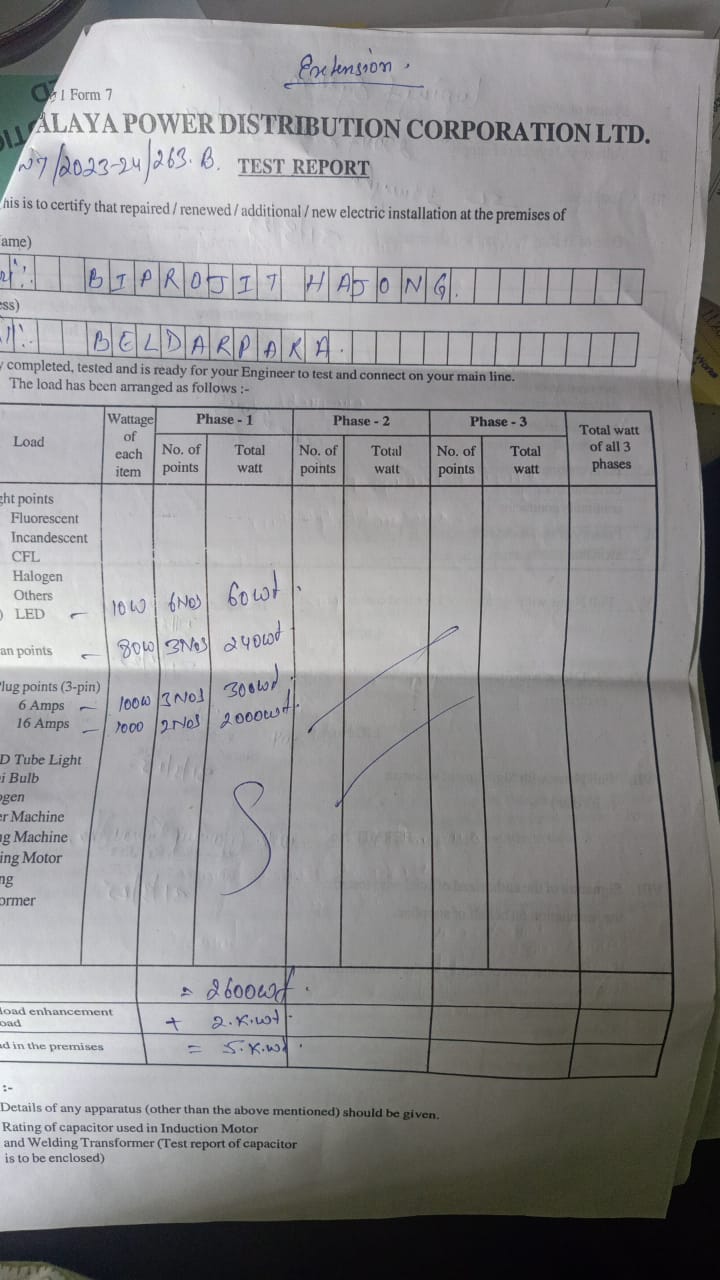 Extension.
1 Form 7
ALAYA POWER DISTRIBUTION CORPORATION LTD.
N7/2023-24/263.B. TEST REPORT
his is to certify that repaired / renewed / additional / new electric installation at the premises of
ame)
BIPROJIT HAJONG.
ess)
BELDARPARA.
y completed, tested and is ready for your Engineer to test and connect on your main line.
The load has been arranged as follows :-
Load Wattage of each item Phase - 1 Phase - 2 Phase - 3 Total watt of all 3 phases
No. of points Total watt No. of points Total watt No. of points Total watt
ght points
Fluorescent
Incandescent
CFL
Halogen
Others
) LED – 10W 6Nos 60wt.
an points – 80W 3Nos 240wt
lug points (3-pin)
6 Amps – 100W 3Nos 300wt.
16 Amps – 1000 2Nos 2000wt.
D Tube Light
i Bulb
ogen
er Machine
ng Machine
ing Motor
ng
ormer
= 2600wt.
load enhancement
oad + 2.K.wt.
ad in the premises = 5.K.wt.
:-
Details of any apparatus (other than the above mentioned) should be given.
Rating of capacitor used in Induction Motor
and Welding Transformer (Test report of capacitor
is to be enclosed)